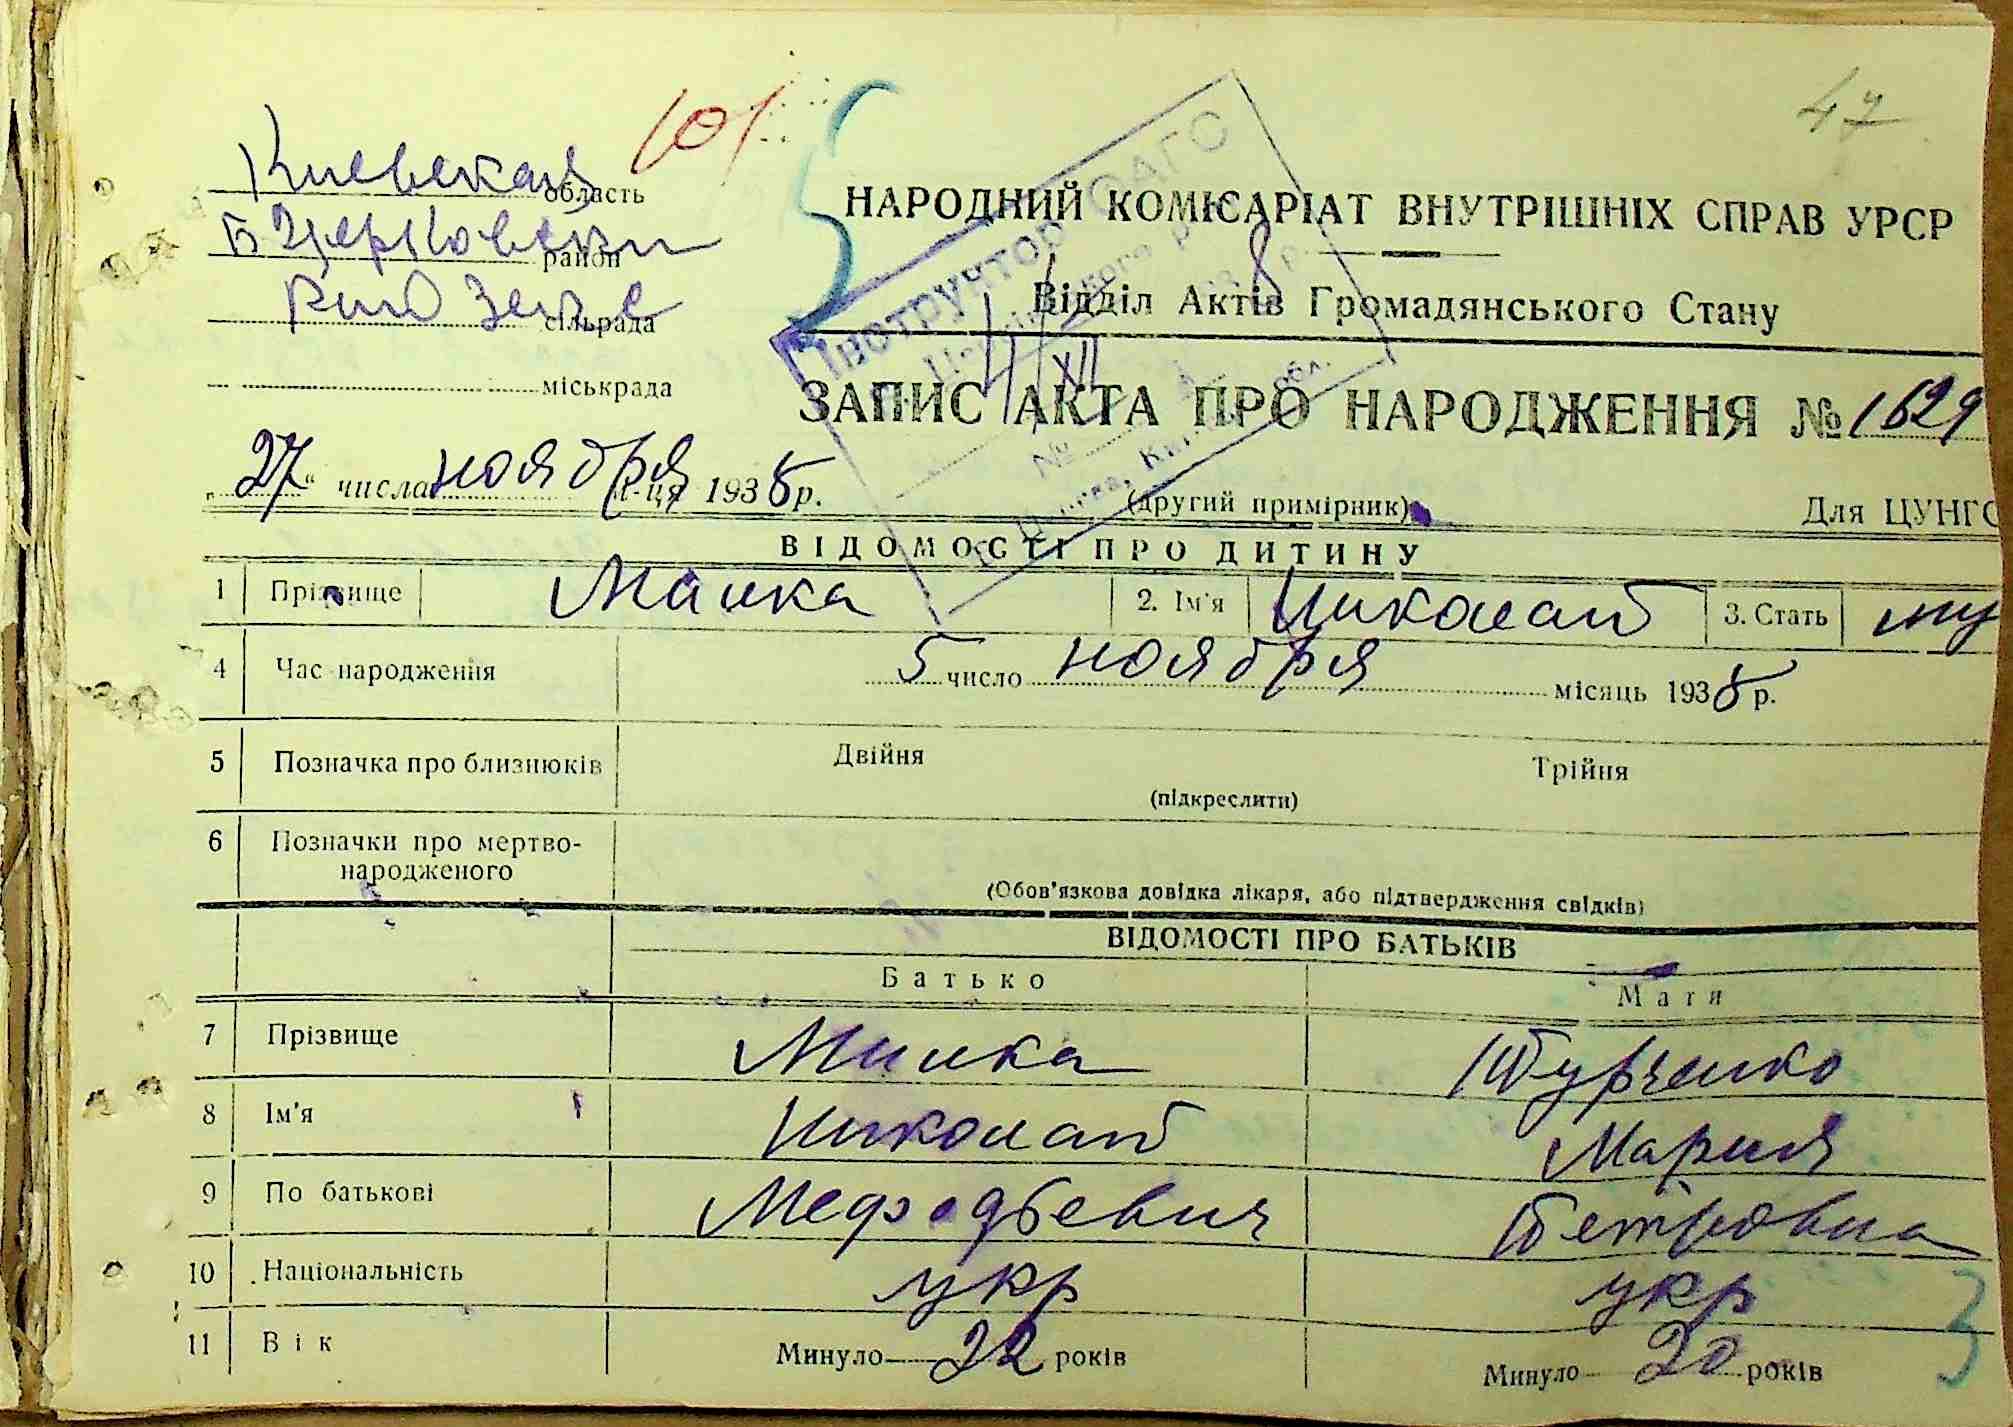 47
101
Киевская область
Б Церковски район
сільрада
міськрада
НАРОДНИЙ КОМІСАРІАТ ВНУТРІШНІХ СПРАВ УРСР
Відділ Актів Громадянського Стану
ЗАПИС АКТА ПРО НАРОДЖЕННЯ № 1629
Інструктор ОАГС
"27" числа ноября м-ця 1938 р.
(другий примірник)
Для ЦУНГО
ВІДОМОСТІ ПРО ДИТИНУ
1 Прізвище 2. Ім'я Николай 3. Стать му
4 Час народження 5 число ноября місяць 1938 р.
5 Позначка про близнюків Двійня Трійня
(підкреслити)
6 Позначки про мертво-
народженого
(Обов'язкова довідка лікаря, або підтвердження свідків)
ВІДОМОСТІ ПРО БАТЬКІВ
Батько Мати
7 Прізвище
8 Ім'я Николай Мария
9 По батькові Мефодьевич Петровна
10 Національність укр укр
11 Вік Минуло 22 років Минуло 20 років